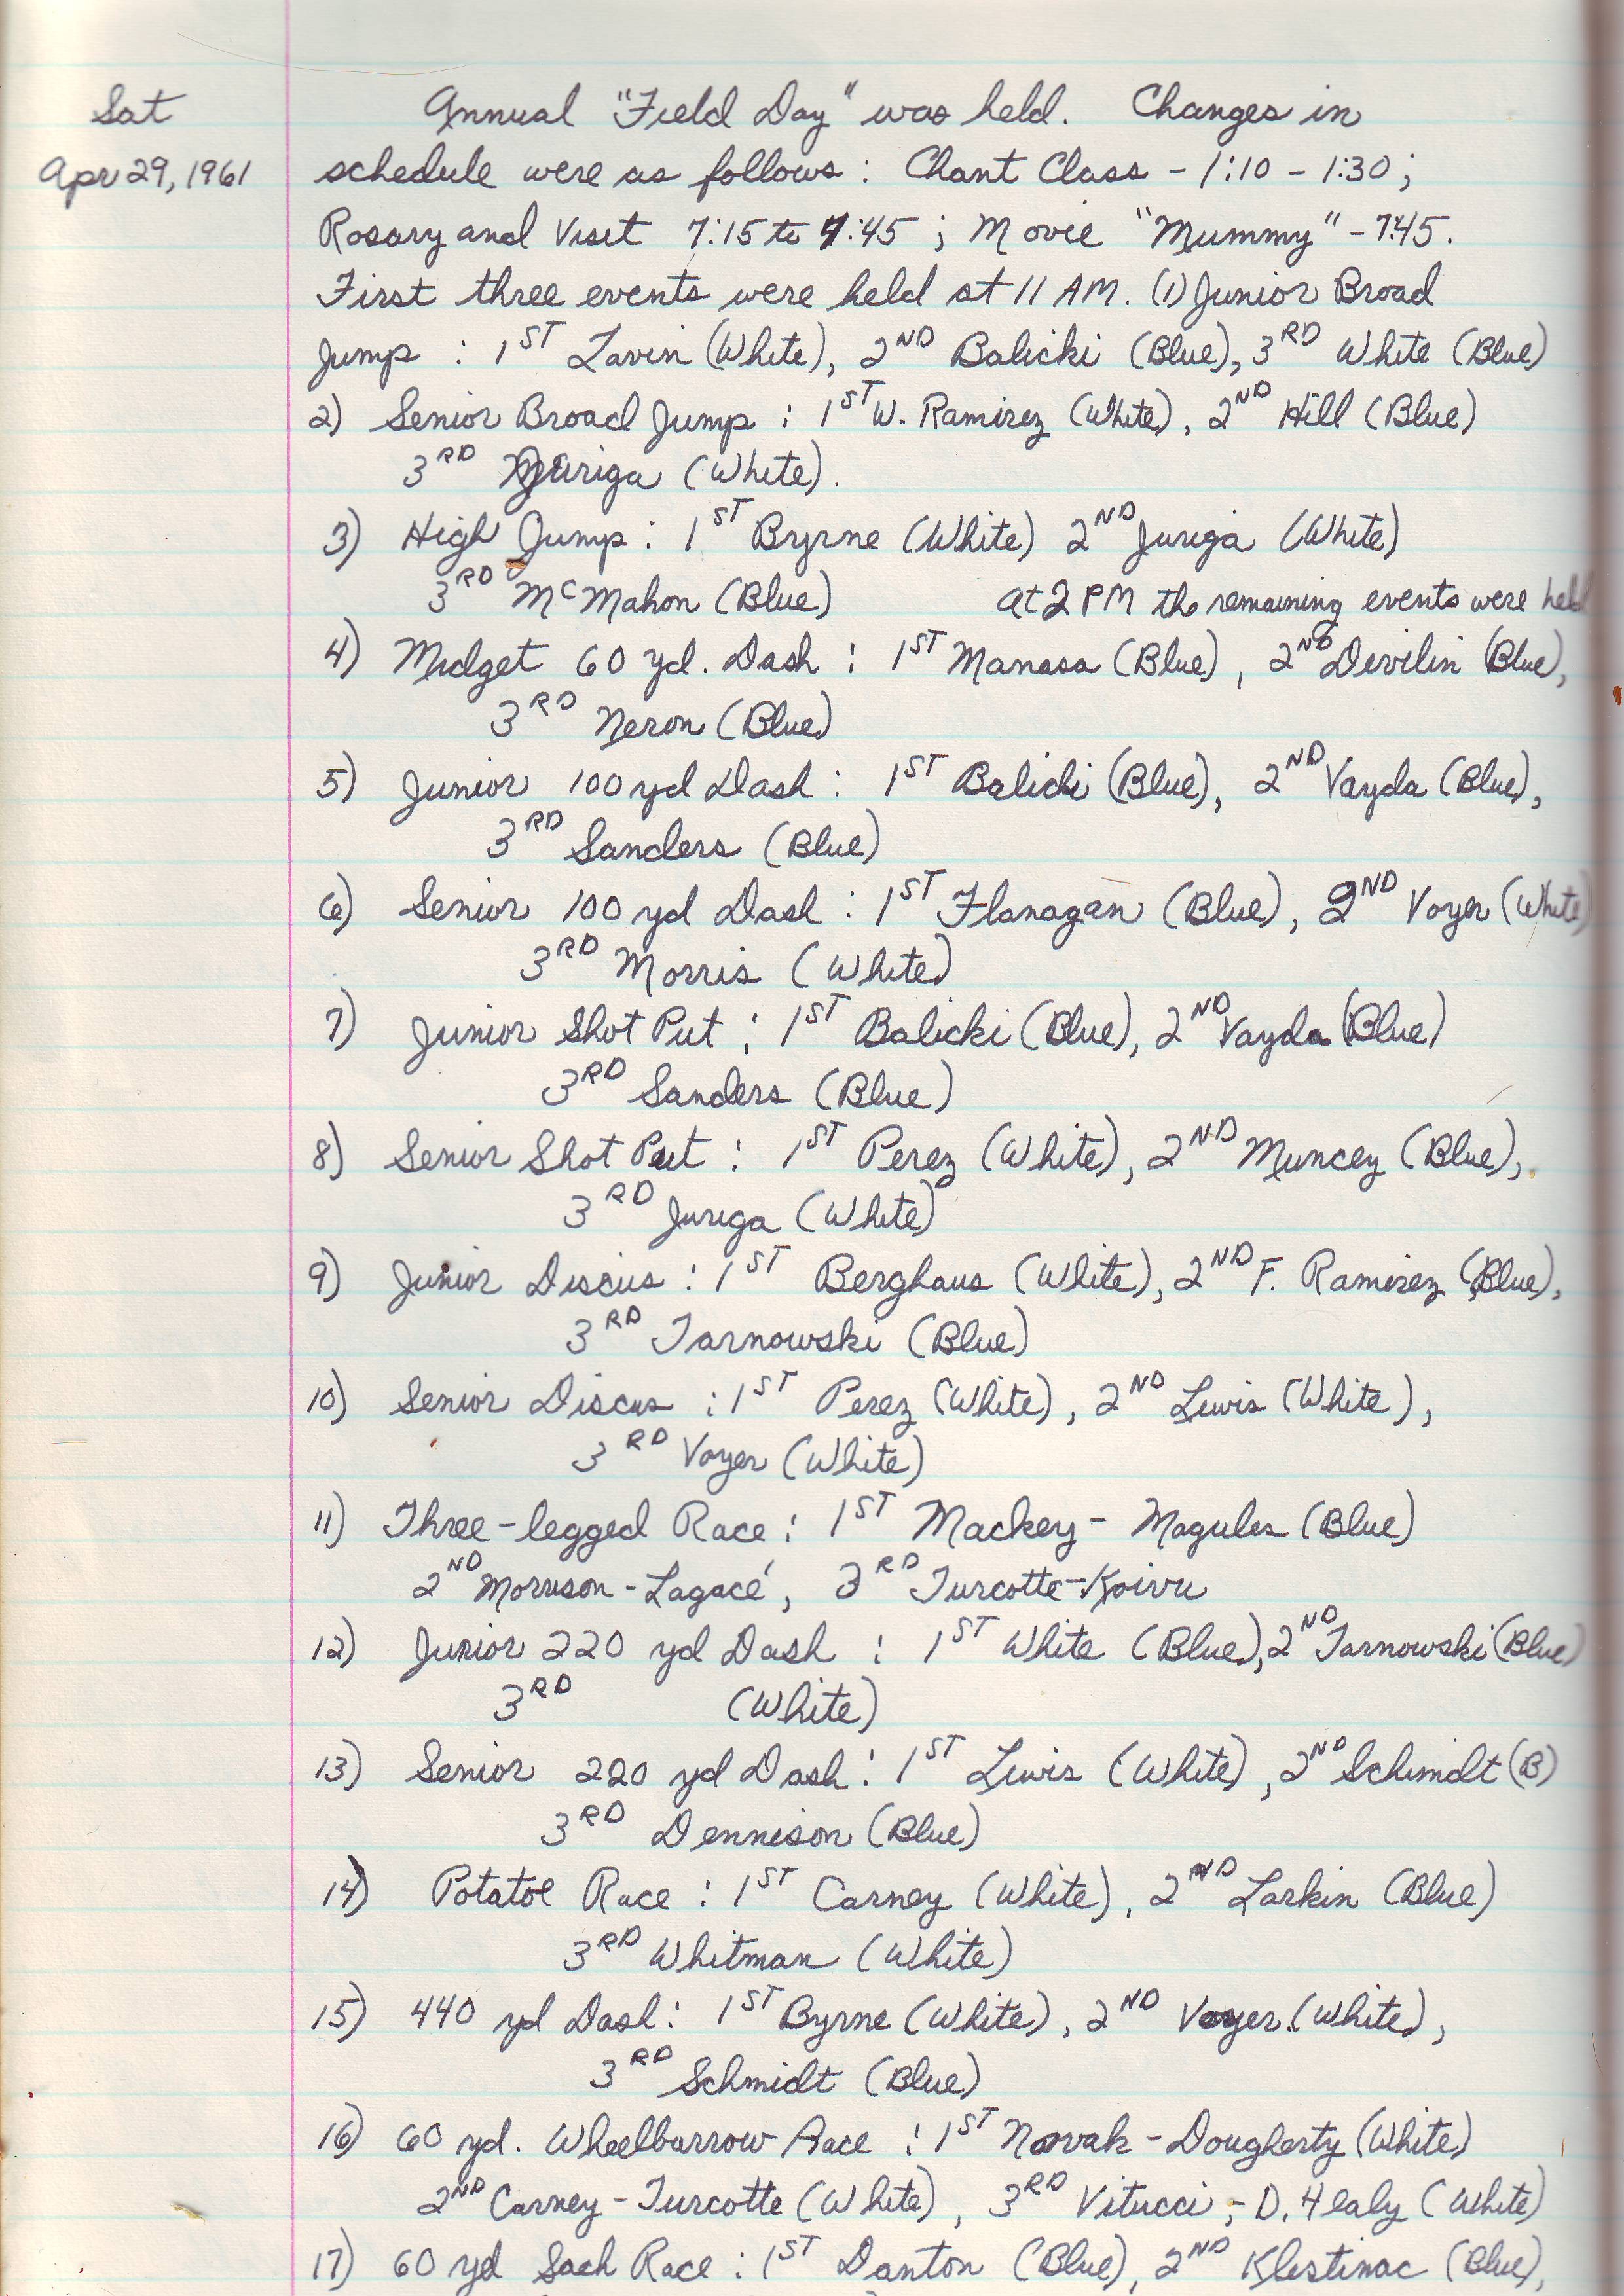 Sat
Apr 29, 1961
Annual "Field Day" was held. Changes in
schedule were as follows: Chant Class - 1:10 - 1:30;
Rosary and Visit 7:15 to 7:45; Movie "Mummy" - 7:45.
First three events were held at 11 AM. (1) Junior Broad
Jump : 1ST Lavin (White), 2ND Balicki (Blue), 3RD White (Blue)
2) Senior Broad Jump : 1ST W. Ramirez (White), 2ND Hill (Blue)
3RD Juriga (White).
3) High Jump : 1ST Byrne (White) 2ND Juriga (White)
3RD McMahon (Blue) At 2 PM the remaining events were held
4) Midget 60 yd. Dash : 1ST Manasa (Blue), 2ND Devilin (Blue),
3RD Neron (Blue)
5) Junior 100 yd Dash : 1ST Balicki (Blue), 2ND Vayda (Blue),
3RD Sanders (Blue)
6) Senior 100 yd Dash : 1ST Flanagan (Blue), 2ND Voyer (White)
3RD Morris (White)
7) Junior Shot Put : 1ST Balicki (Blue), 2ND Vayda (Blue)
3RD Sanders (Blue)
8) Senior Shot Put : 1ST Perez (White), 2ND Muncey (Blue),
3RD Juriga (White)
9) Junior Discus : 1ST Berghaus (White), 2ND F. Ramirez (Blue),
3RD Tarnowski (Blue)
10) Senior Discus : 1ST Perez (White), 2ND Lewis (White),
3RD Voyer (White)
11) Three-legged Race : 1ST Mackey - Magules (Blue)
2ND Morrison - Lagacé, 3RD Turcotte-Koivu
12) Junior 220 yd Dash : 1ST White (Blue), 2ND Tarnowski (Blue)
3RD (White)
13) Senior 220 yd Dash : 1ST Lewis (White), 2ND Schimdt (B)
3RD Dennison (Blue)
14) Potatoe Race : 1ST Carney (White), 2ND Larkin (Blue)
3RD Whitman (White)
15) 440 yd Dash : 1ST Byrne (White), 2ND Voyer (White),
3RD Schmidt (Blue)
16) 60 yd. Wheelbarrow Race : 1ST Novak - Dougherty (White)
2ND Carney - Turcotte (White), 3RD Vitucci - D. Healy (White)
17) 60 yd Sach Race : 1ST Danton (Blue), 2ND Klestinac (Blue),